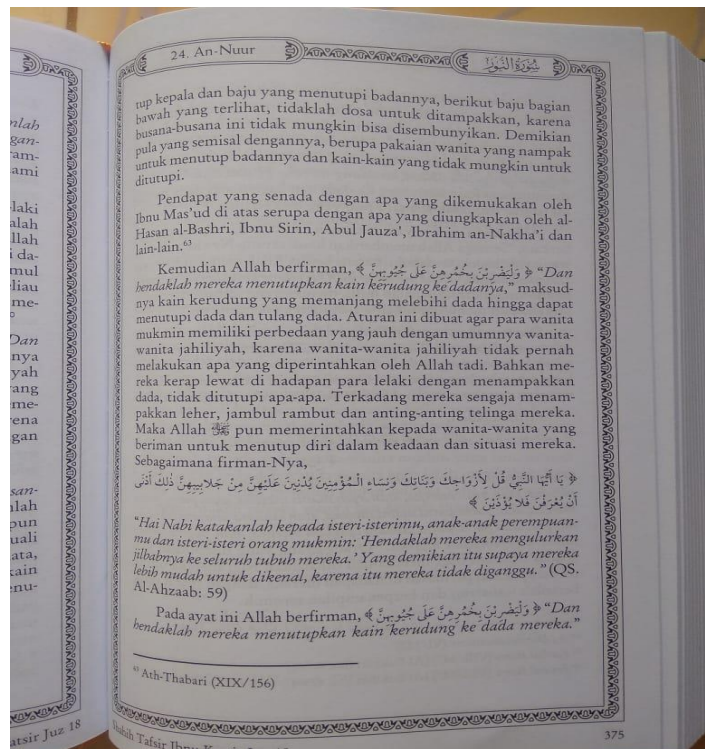 nlah
gan-
ram-
ami
laki
alah
llah
i da-
mul
rliau
me-
Dan
nya
yah
ang
me-
rena
gan
san-
nlah
pun
uali
ata,
kain
enu-
atsir Juz 18
24. An-Nuur
سُوْرَةُ النُّوْرِ
tup kepala dan baju yang menutupi badannya, berikut baju bagian
bawah yang terlihat, tidaklah dosa untuk ditampakkan, karena
busana-busana ini tidak mungkin bisa disembunyikan. Demikian
pula yang semisal dengannya, berupa pakaian wanita yang nampak
untuk menutup badannya dan kain-kain yang tidak mungkin untuk
ditutupi.
Pendapat yang senada dengan apa yang dikemukakan oleh
Ibnu Mas'ud di atas serupa dengan apa yang diungkapkan oleh al-
Hasan al-Bashri, Ibnu Sirin, Abul Jauza', Ibrahim an-Nakha'i dan
lain-lain.⁶³
Kemudian Allah berfirman, ﴿ وَلْيَضْرِبْنَ بِخُمُرِهِنَّ عَلَى جُيُوبِهِنَّ ﴾ “Dan
hendaklah mereka menutupkan kain kerudung ke dadanya,” maksud-
nya kain kerudung yang memanjang melebihi dada hingga dapat
menutupi dada dan tulang dada. Aturan ini dibuat agar para wanita
mukmin memiliki perbedaan yang jauh dengan umumnya wanita-
wanita jahiliyah, karena wanita-wanita jahiliyah tidak pernah
melakukan apa yang diperintahkan oleh Allah tadi. Bahkan me-
reka kerap lewat di hadapan para lelaki dengan menampakkan
dada, tidak ditutupi apa-apa. Terkadang mereka sengaja menam-
pakkan leher, jambul rambut dan anting-anting telinga mereka.
Maka Allah ﷻ pun memerintahkan kepada wanita-wanita yang
beriman untuk menutup diri dalam keadaan dan situasi mereka.
Sebagaimana firman-Nya,
﴿ يَا أَيُّهَا النَّبِيُّ قُلْ لِأَزْوَاجِكَ وَبَنَاتِكَ وَنِسَاءِ الْمُؤْمِنِينَ يُدْنِينَ عَلَيْهِنَّ مِنْ جَلَابِيبِهِنَّ ذَلِكَ أَدْنَى
أَنْ يُعْرَفْنَ فَلَا يُؤْذَيْنَ ﴾
“Hai Nabi katakanlah kepada isteri-isterimu, anak-anak perempuan-
mu dan isteri-isteri orang mukmin: ‘Hendaklah mereka mengulurkan
jilbabnya ke seluruh tubuh mereka.’ Yang demikian itu supaya mereka
lebih mudah untuk dikenal, karena itu mereka tidak diganggu.” (QS.
Al-Ahzaab: 59)
Pada ayat ini Allah berfirman, ﴿ وَلْيَضْرِبْنَ بِخُمُرِهِنَّ عَلَى جُيُوبِهِنَّ ﴾ “Dan
hendaklah mereka menutupkan kain kerudung ke dada mereka.”
⁶³ Ath-Thabari (XIX/156)
Shahih Tafsir Ibnu
375